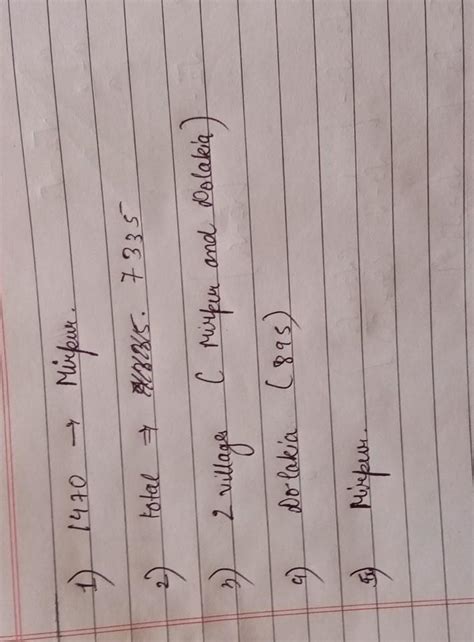 1) 1470 → Mirpur.
2) total → 7335
3) 2 villages ( Mirpur and Dolakia)
4) Dolakia (895)
5) Mirpur.